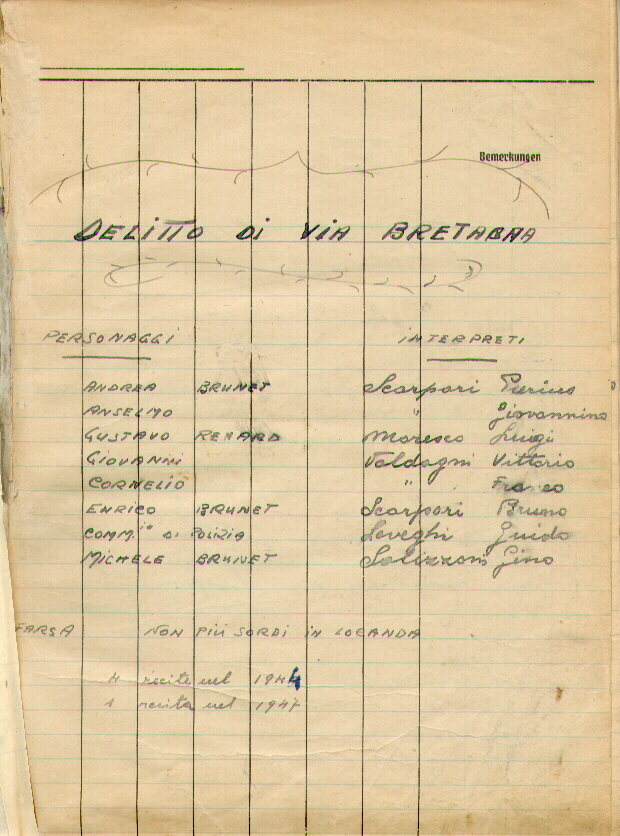 Bemerkungen
DELITTO DI VIA BRETABAA
PERSONAGGI INTERPRETI
ANDREA BRUNET Scarpari Pierino
ANSELMO " Giovannino
GUSTAVO RENARD Moresco Luigi
GIOVANNI Valdagni Vittorio
CORNELIO " Franco
ENRICO BRUNET Scarpari Bruno
COMM.io DI POLIZIA Laveghi Guido
MICHELE BRUNET Salizzoni Gino
FARSA NON PIÙ SORDI IN LOCANDA
4 recite nel 1944
1 recita nel 1947